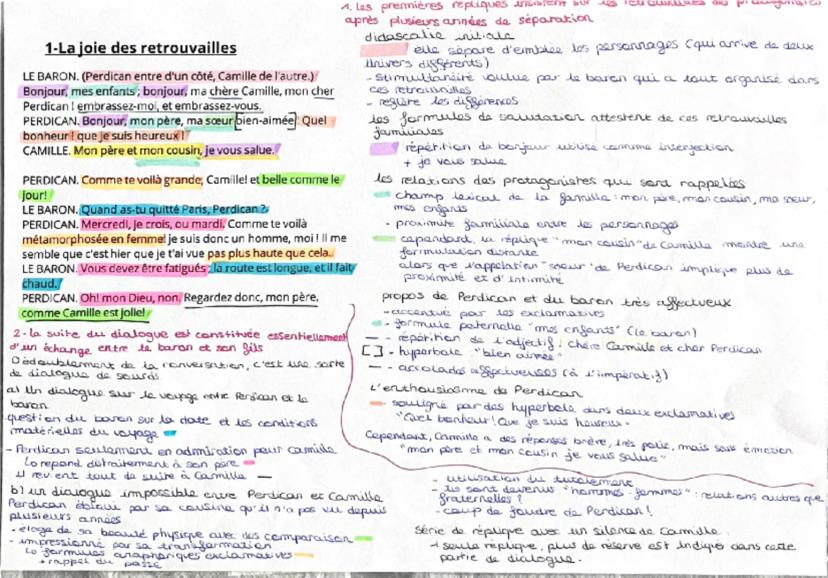 1-La joie des retrouvailles
LE BARON. (Perdican entre d'un côté, Camille de l'autre.)
Bonjour, mes enfants ; bonjour, ma chère Camille, mon cher
Perdican ! embrassez-moi, et embrassez-vous.
PERDICAN. Bonjour, mon père, ma sœur [bien-aimée] Quel
bonheur ! que je suis heureux !
CAMILLE. Mon père et mon cousin, je vous salue.
PERDICAN. Comme te voilà grande, Camille! et belle comme le
jour!
LE BARON. Quand as-tu quitté Paris, Perdican ?
PERDICAN. Mercredi, je crois, ou mardi. Comme te voilà
métamorphosée en femme! je suis donc un homme, moi ! Il me
semble que c'est hier que je t'ai vue pas plus haute que cela.
LE BARON. Vous devez être fatigués ; la route est longue, et il fait
chaud.
PERDICAN. Oh! mon Dieu, non. Regardez donc, mon père,
comme Camille est jolie!
2- la suite du dialogue est constituée essentiellement
d'un échange entre le baron et son fils
dédoublement de la conversation, c'est une sorte
de dialogue de sourds.
a) Un dialogue sur le voyage entre Perdican et le
baron
question du baron sur la date et les conditions
matérielles du voyage
- Perdican seulement en admiration pour Camille
répond distraitement à son père
- il revient tout de suite à Camille
b) un dialogue impossible entre Perdican et Camille
Perdican ébloui par sa cousine qu'il n'a pas vu depuis
plusieurs années
- éloge de sa beauté physique avec des comparaison
- impressionné par sa transformation
formules anaphoriques exclamatives
+ rappel du passé
1. les premières répliques insistent sur les retrouvailles des protagonistes
après plusieurs années de séparation
didascalie initiale
elle sépare d'emblée les personnages (qui arrive de deux
univers différents)
- stimultanéité voulue par le baron qui a tout organisé dans
ces retrouvailles
- les différences
les formules de salutation attestent de ces retrouvailles
familiales
répétition de bonjour utilisé comme interjection
+ je vous salue
les relations des protagonistes qui sont rappelées
champ lexical de la famille : mon père, mon cousin, ma sœur,
mes enfants
- proximité familiale entre les personnages
- cependant, la réplique "mon cousin" de Camille montre une
formulation distante
alors que l'appelation "soeur" de Perdican implique plus de
proximité et d'intimité
propos de Perdican et du baron très affectueux
- accentué par les exclamatives
- formule paternelle "mes enfants" (le baron)
- répétition de l'adjectif : chère Camille et cher Perdican
[ ] - hyperbole "bien aimée"
- accolades affectueuses (à l'impératif)
L'enthousiasme de Perdican
- souligné par des hyperbole dans deux exclamatives
"Quel bonheur ! Que je suis heureux."
Cependant, Camille a des réponses brève, très polie, mais sans émotion
"mon père et mon cousin je vous salue"
- utilisation du tutoiement
- ils sont devenus "hommes-femmes" : relations autres que
fraternelles ?
- coup de foudre de Perdican !
Série de réplique avec un silence de Camille.
1 seule réplique, plus de réserve est indiqué dans cette
partie de dialogue.